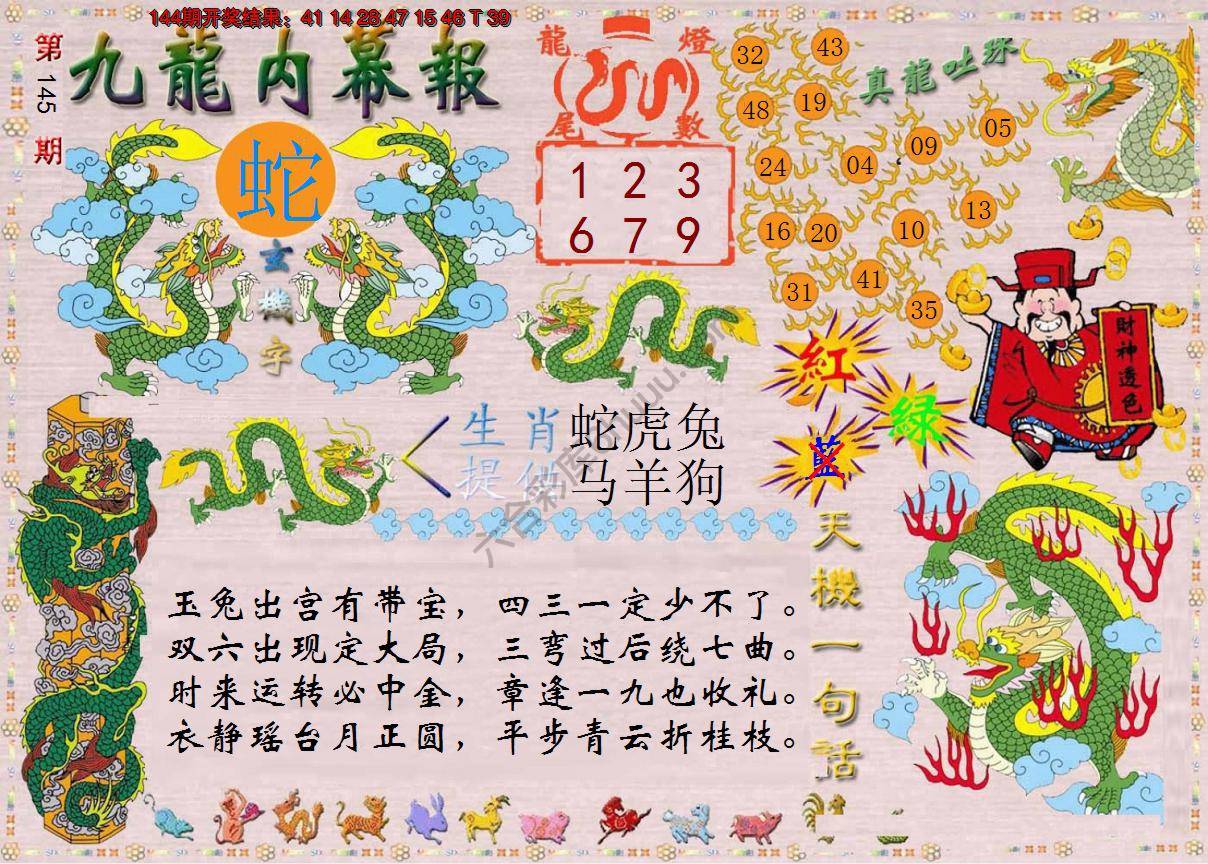 144期开奖结果：41 14 28 47 15 46 T 39
第145期
九龍内幕報
蛇
玄機字
龍燈
尾數
1 2 3
6 7 9
真龍吐珠
32 43
48 19
24 04 09 05
16 20 10 13
31 41 35
財神透色
紅
綠
藍
生肖 蛇虎兔
提供 马羊狗
六合彩库
天機一句話
玉兔出宫有带宝，四三一定少不了。
双六出现定大局，三弯过后绕七曲。
时来运转必中金，章逢一九也收礼。
衣静瑶台月正圆，平步青云折桂枝。